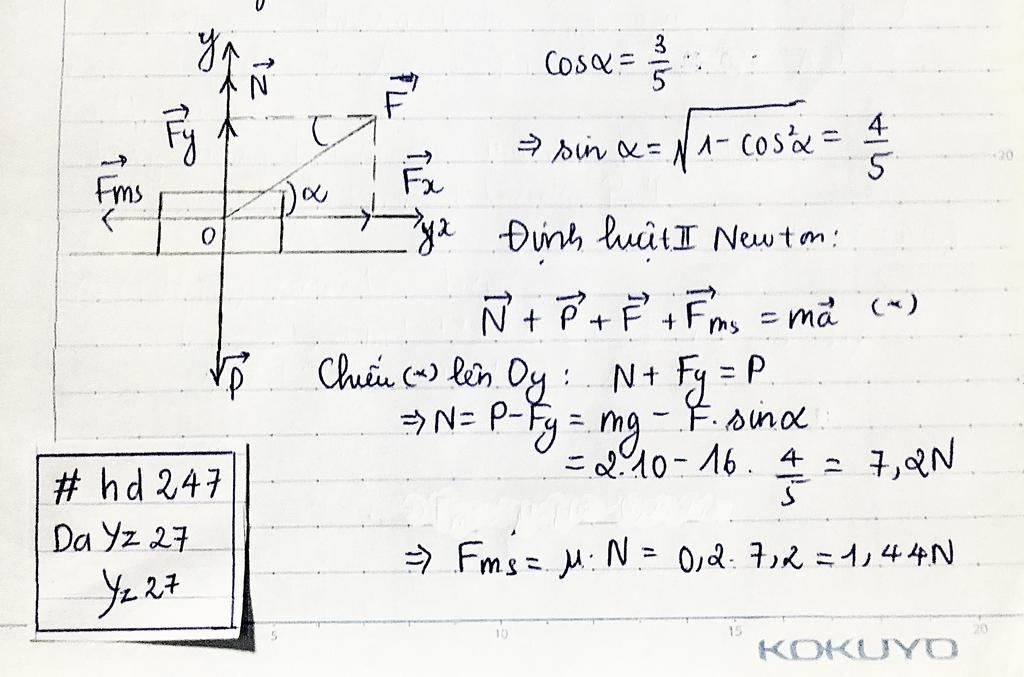 y
N⃗
F⃗
F⃗y
F⃗ms
F⃗x
α
O
yx
P⃗
cosα = 3/5
⇒ sin α = √(1 - cos²α) = 4/5
Định luật II Newton:
N⃗ + P⃗ + F⃗ + F⃗ms = ma⃗ (*)
Chiếu (*) lên Oy: N + Fy = P
⇒ N = P - Fy = mg - F. sinα
= 2.10 - 16. 4/5 = 7,2N
⇒ Fms = μ. N = 0,2. 7,2 = 1,44N
# hd 247
Da Yz 27
Yz 27
5 10 15 20
20
KOKUYO